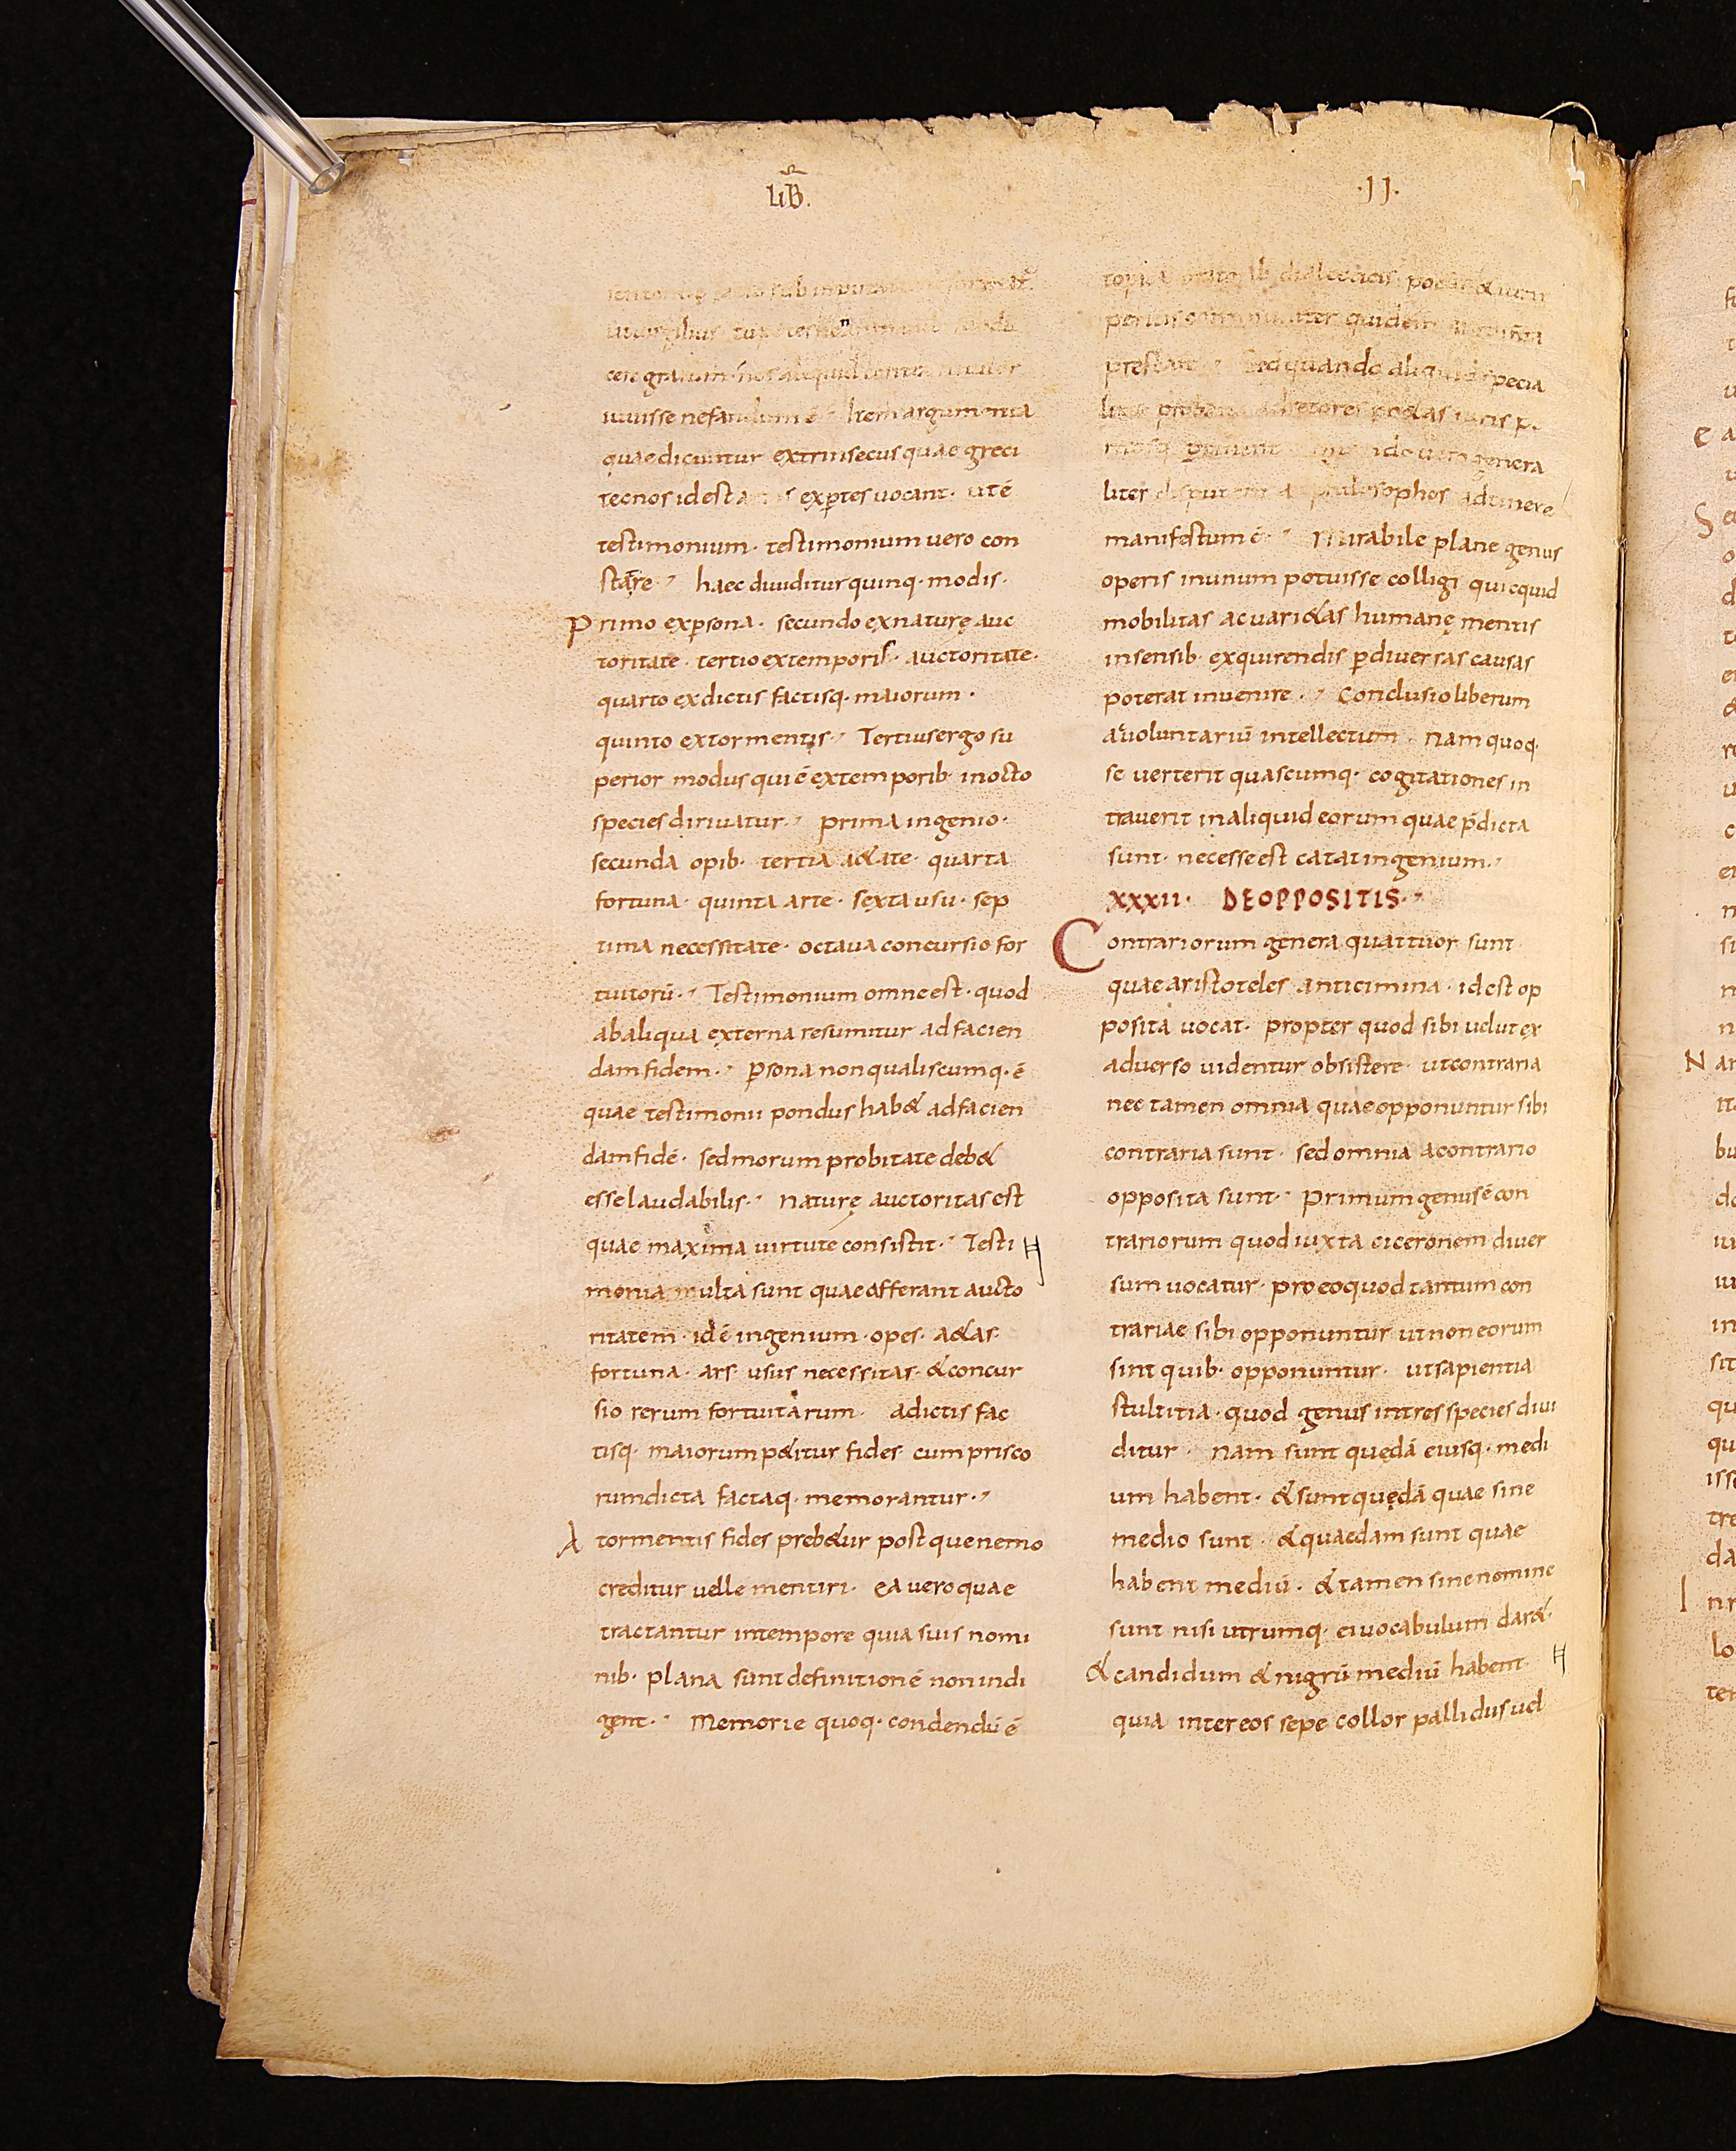 LIB̃. ·II·
cere gratum
iuuisse nefandum ē Item argumenta
quae dicuntur extrinsecus quae greci
tecnos id est artis exꝑtes uocant· ut ē
testimonium· testimonium uero con
stare· haec diuiditur quinq· modis·
Primo exꝑsona· secundo ex naturę auc
toritate· tertio ex temporis auctoritate·
quarto ex dictis factisq· maiorum·
quinto ex tormentis· Tertius ergo su
perior modus qui ē ex temporib· in octo
species diriuatur· prima ingenio·
secunda opib· tertia a&ate· quarta
fortuna· quinta arte· sexta usu· sep
tima necessitate· octaua concursio for
tuitorū· Testimonium omne est· quod
ab aliqua externa re sumitur ad facien
dam fidem· ꝑsona non qualiscumq· ē
quae testimonii pondus hab& ad facien
dam fidē· sed morum probitate deb&
esse laudabilis· Naturę auctoritas est
quae maxima uirtute consistit· Testi
monia multa sunt quae afferant aucto
ritatem· id ē ingenium· opes· a&as·
fortuna· ars· usus necessitas· & concur
sio rerum fortuitarum· a dictis fac
tisq· maiorum p&itur fides cum prisco
rum dicta factaq· memorantur·
A tormentis fides preb&ur post que nemo
creditur uelle mentiri· ea uero quae
tractantur in tempore quia suis nomi
nib· plana sunt definitionē non indi
gent· Memorie quoq· condendū ē
topica dialecticis po&is & iuris
peritis quidem
prestare· Sed quando aliquid specia
liter ad r&ores po&as iurisp·
genera
liter philosophos adtinere
manifestum ē· Mirabile plane genus
operis in unum potuisse colligi quicquid
mobilitas ac uari&as humanę mentis
in sensib· exquirendis ꝑ diuersas causas
poterat inuenire· Conclusio liberum
ac uoluntariū intellectum· Nam quoq·
se uerterit quascumq· cogitationes in
trauerit in aliquid eorum quae p̄dicta
sunt· necesse est cadat ingenium·
XXXII· DE OPPOSITIS·
Contrariorum genera quattuor sunt
quae aristoteles anticimina· id est op
posita uocat· propter quod sibi uelut ex
aduerso uidentur obsistere· ut contraria
nec tamen omnia quae opponuntur sibi
contraria sunt· sed omnia a contrario
opposita sunt· Primum genus ē con
trariorum quod iuxta ciceronem diuer
sum uocatur· pro eo quod tantum con
trariae sibi opponuntur ut non eorum
sint quib· opponuntur· ut sapientia
stultitia· quod genus in tres species diui
ditur· Nam sunt quędā eiusq· medi
um habent· & sunt quędā quae sine
medio sunt· & quaedam sunt quae
habent mediū· & tamen sine nomine
sunt nisi utrumq· ei uocabulum dar&·
& candidum & nigrū mediū habent
quia inter eos sepe collor pallidus uel